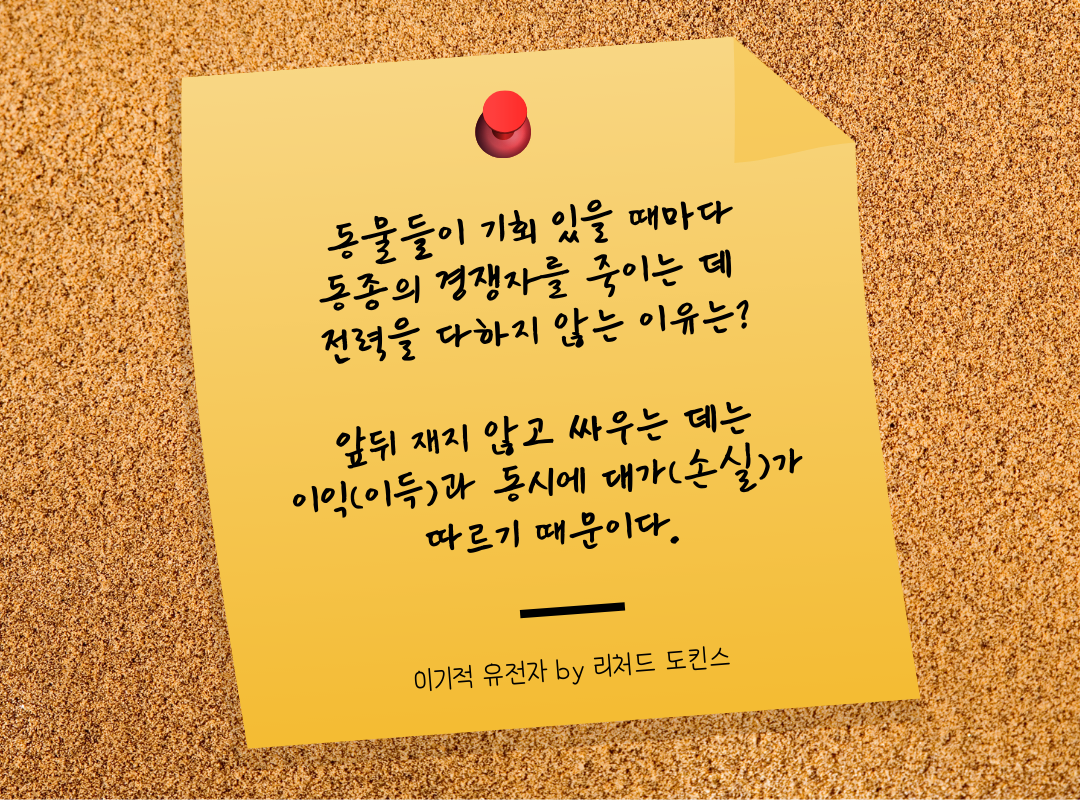 동물들이 기회 있을 때마다
동종의 경쟁자를 죽이는 데
전력을 다하지 않는 이유는?
앞뒤 재지 않고 싸우는 데는
이익(이득)과 동시에 대가(손실)가
따르기 때문이다.
이기적 유전자 by 리처드 도킨스